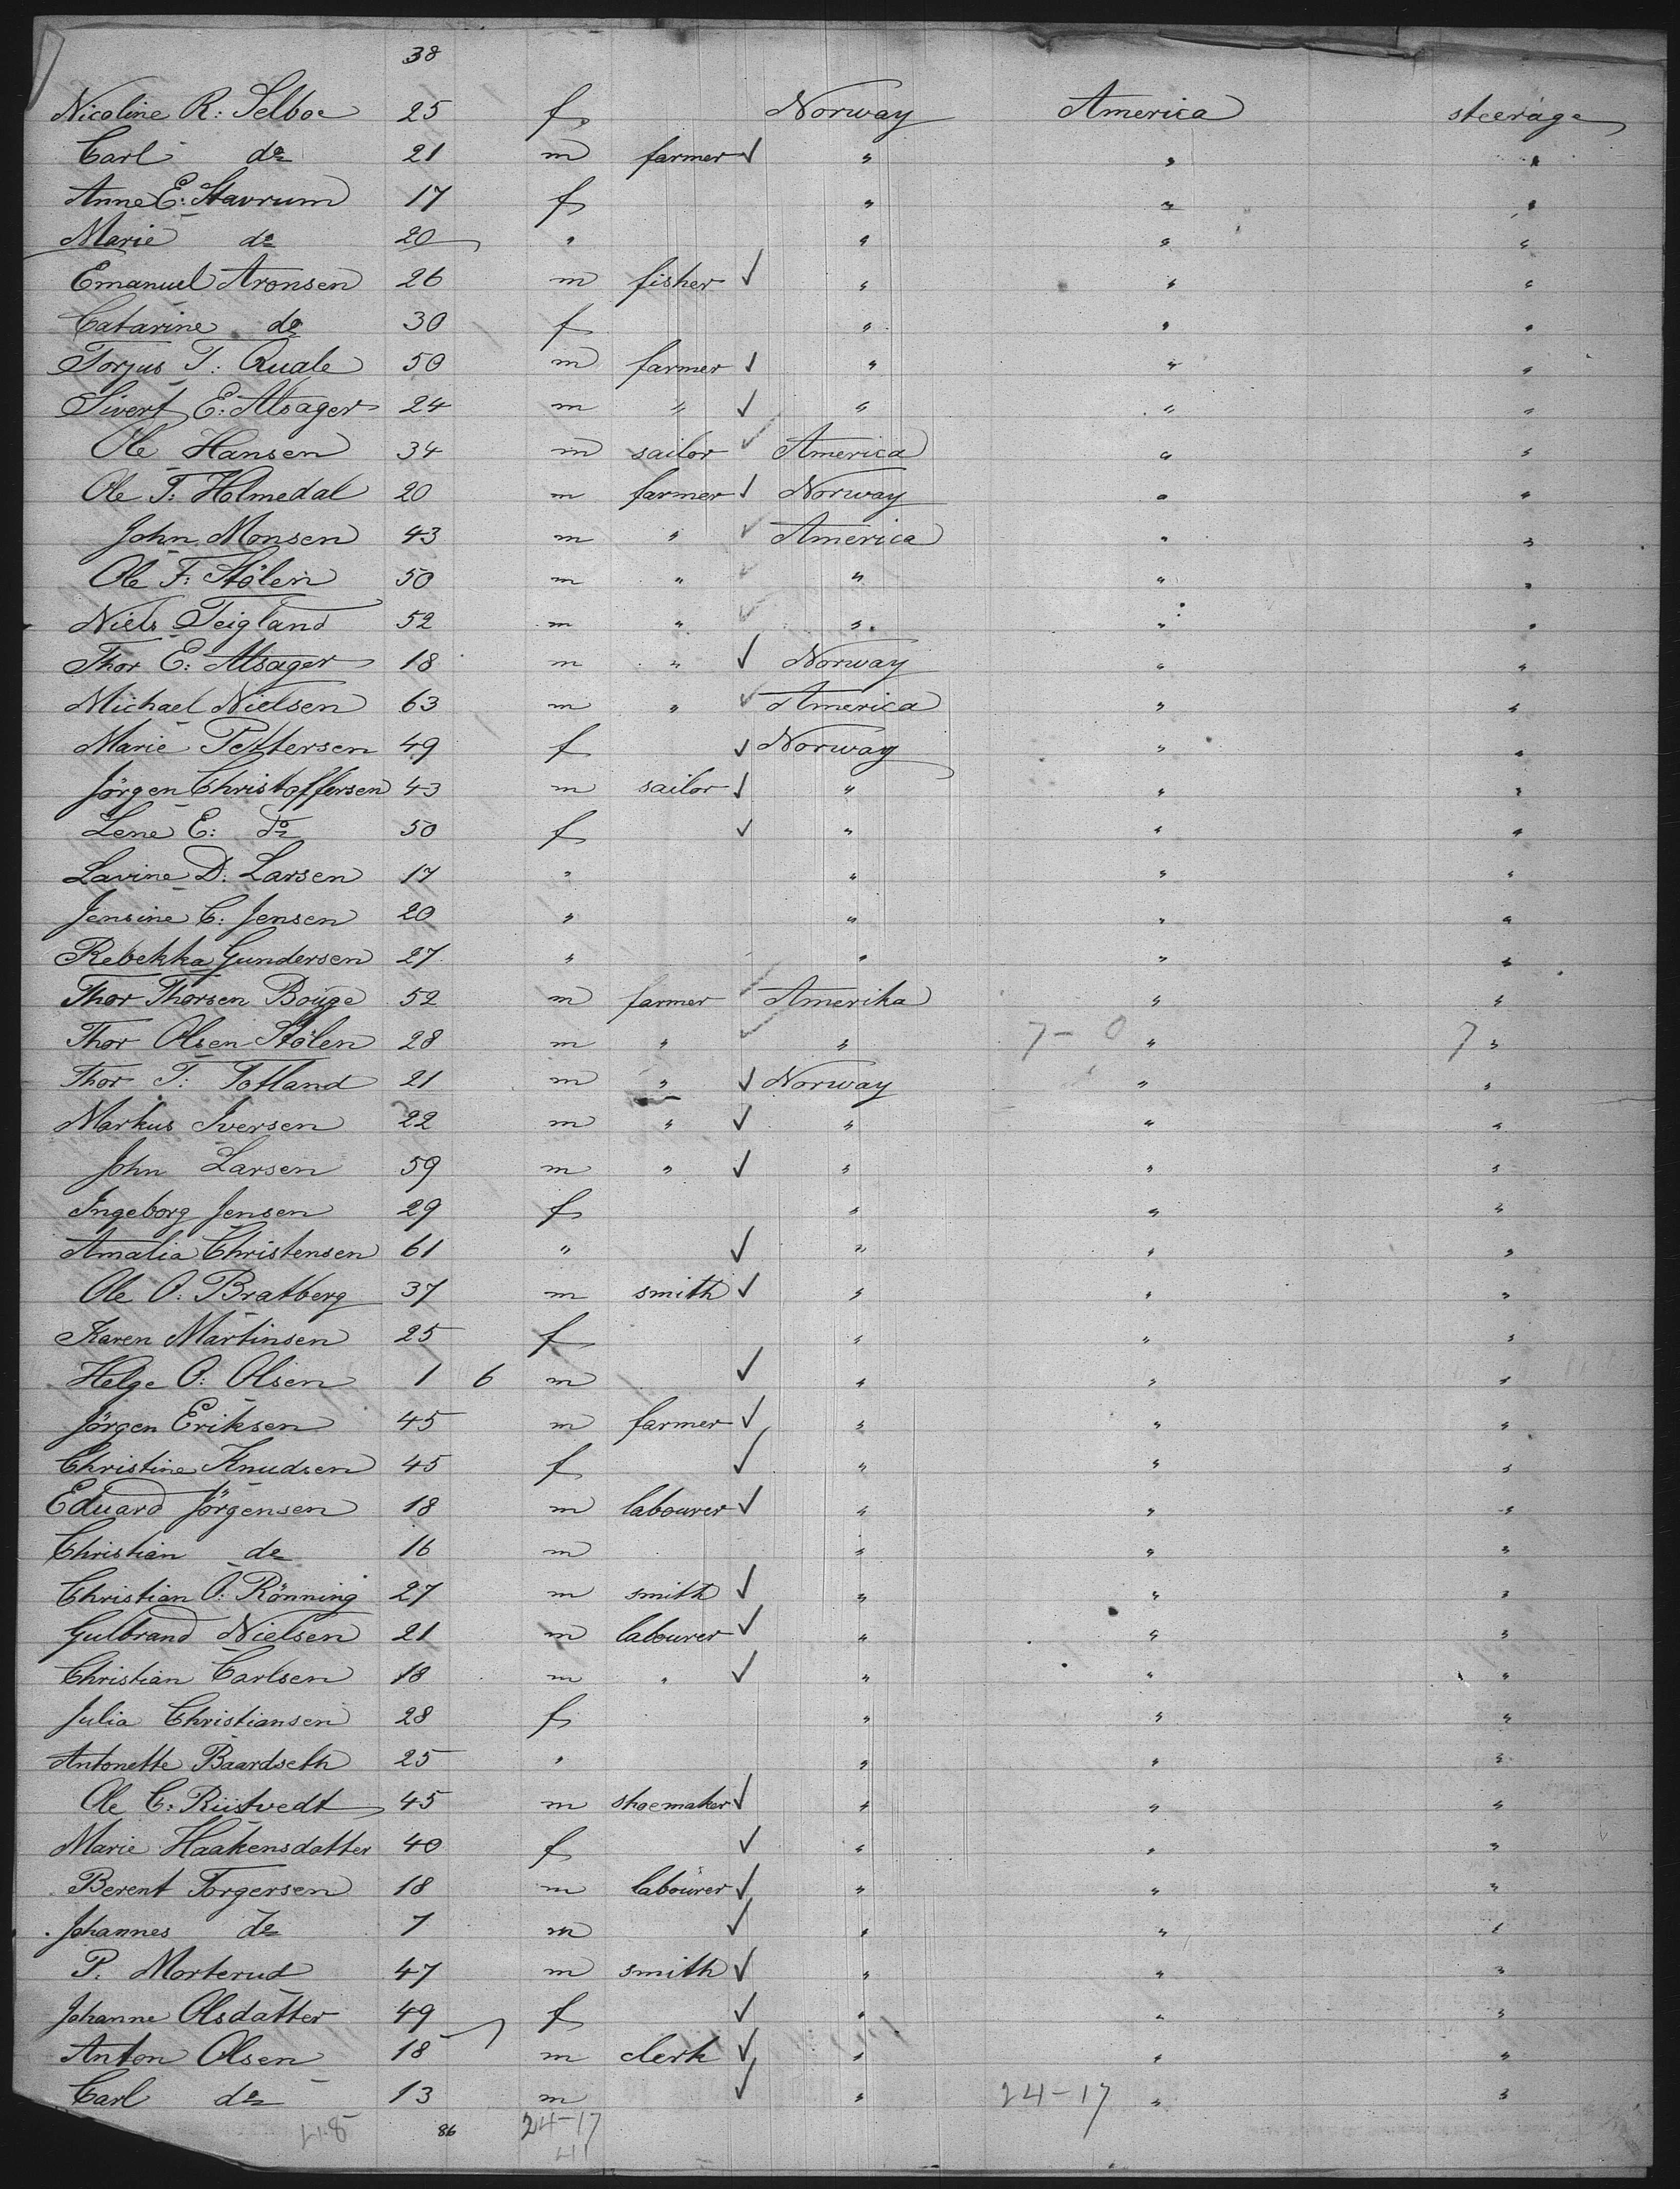 38
Nicoline R: Selboe 25 f Norway America steerage
Carl do 21 m farmer ✓ " " "
Anne E: Stavrum 17 f " " "
Marie do 20 " " " "
Emanuel Aronsen 26 m fisher ✓ " " "
Catarine do 30 f " " "
Torjus T: Quale 50 m farmer ✓ " " "
Sivert E: Alsager 24 m " ✓ " " "
Ole Hansen 34 m sailor ✓ America " "
Ole T: Holmedal 20 m farmer ✓ Norway " "
John Monsen 43 m " ✓ America " "
Ole F: Stölen 50 m " ✓ " " "
Niels Teigland 52 m " ✓ " " "
Thor E: Alsager 18 m " ✓ Norway " "
Michael Nielsen 63 m " ✓ America " "
Marie Pettersen 49 f ✓ Norway " "
Jörgen Christoffersen 43 m sailor ✓ " " "
Lene E: Do 50 f ✓ " " "
Lavine D: Larsen 17 " " " "
Jensine C: Jensen 20 " " " "
Rebekka Gundersen 27 " " " "
Thor Thorsen Bouge 52 m farmer ✓ Amerika " "
Thor Olsen Stölen 28 m " ✓ " 7-0 " 7 "
Thor T: Totland 21 m " ✓ Norway " "
Markus Iversen 22 m " ✓ " " "
John Larsen 59 m " ✓ " " "
Ingeborg Jensen 29 f " " "
Amalia Christensen 61 " ✓ " " "
Ole O: Bratberg 37 m smith ✓ " " "
Karen Martinsen 25 f " " "
Helge O: Olsen 1 6 m ✓ " " "
Jörgen Eriksen 45 m farmer ✓ " " "
Christine Knudsen 45 f ✓ " " "
Eduard Jörgensen 18 m labourer ✓ " " "
Christian do 16 m " " "
Christian O: Rönning 27 m smith ✓ " " "
Gulbrand Nielsen 21 m labourer ✓ " " "
Christian Carlsen 18 m " ✓ " " "
Julia Christiansen 28 f " " "
Antonette Baardseth 25 " " " "
Ole C: Riistvedt 45 m shoemaker ✓ " " "
Marie Haakensdatter 40 f ✓ " " "
Berent Torgersen 18 m labourer ✓ " " "
Johannes Do 7 m ✓ " " "
P. Morterud 47 m smith ✓ " " "
Johanne Olsdatter 49 f ✓ " " "
Anton Olsen 18 m clerk ✓ " " "
Carl do 13 m ✓ " 24-17 " "
86 24-17
41